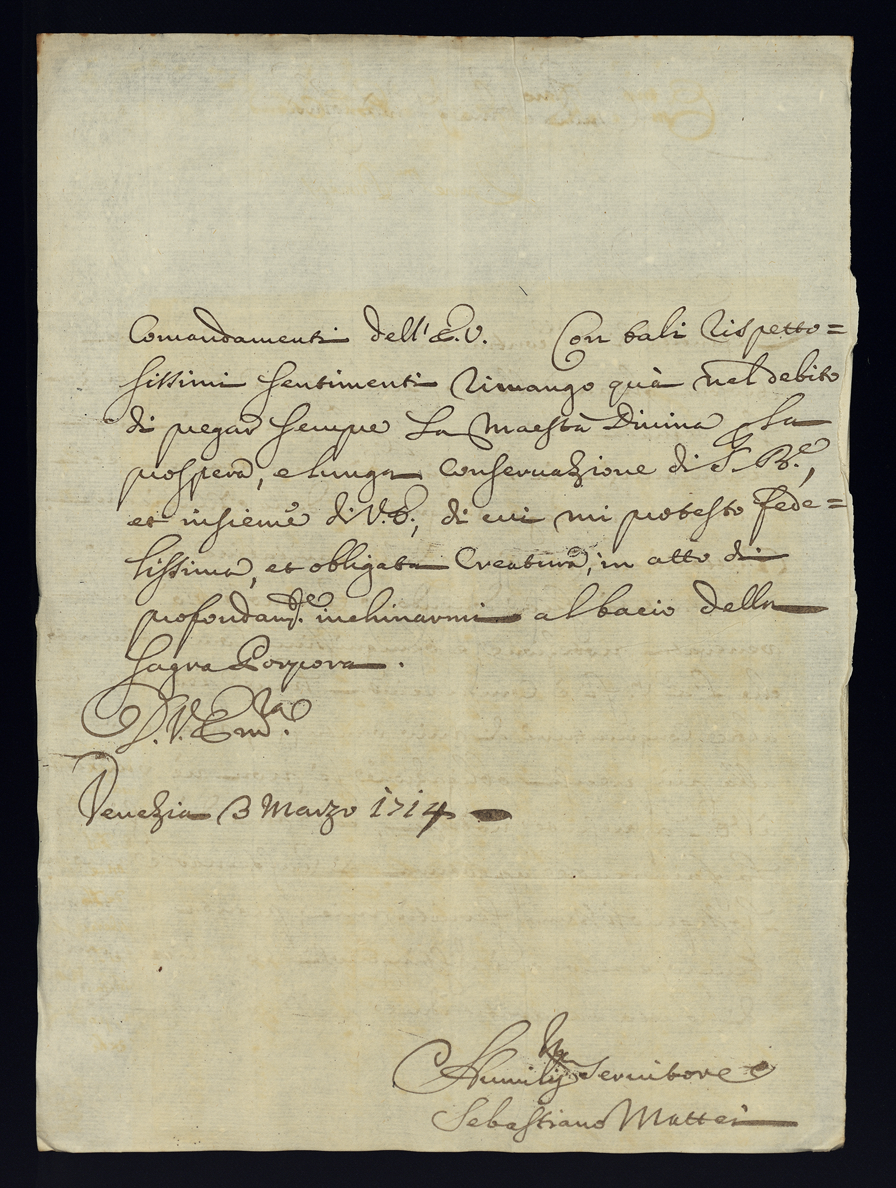 Comandamenti dell'E.V. Con tali rispetto=
sissimi sentimenti rimango quà nel debito
di pregar sempre La Maestà Divina p la
prospera, e lunga Conservazione di S. B.e,
et insieme di V.E., di cui mi protesto fede=
lissima, et obligata Creatura, in atto di
profondam.te inchinarmi al bacio della
Sagra Porpora.
D. V. Em.za
Venezia 3 Marzo 1714
Humiliss.mo Servitore
Sebastiano Mattei